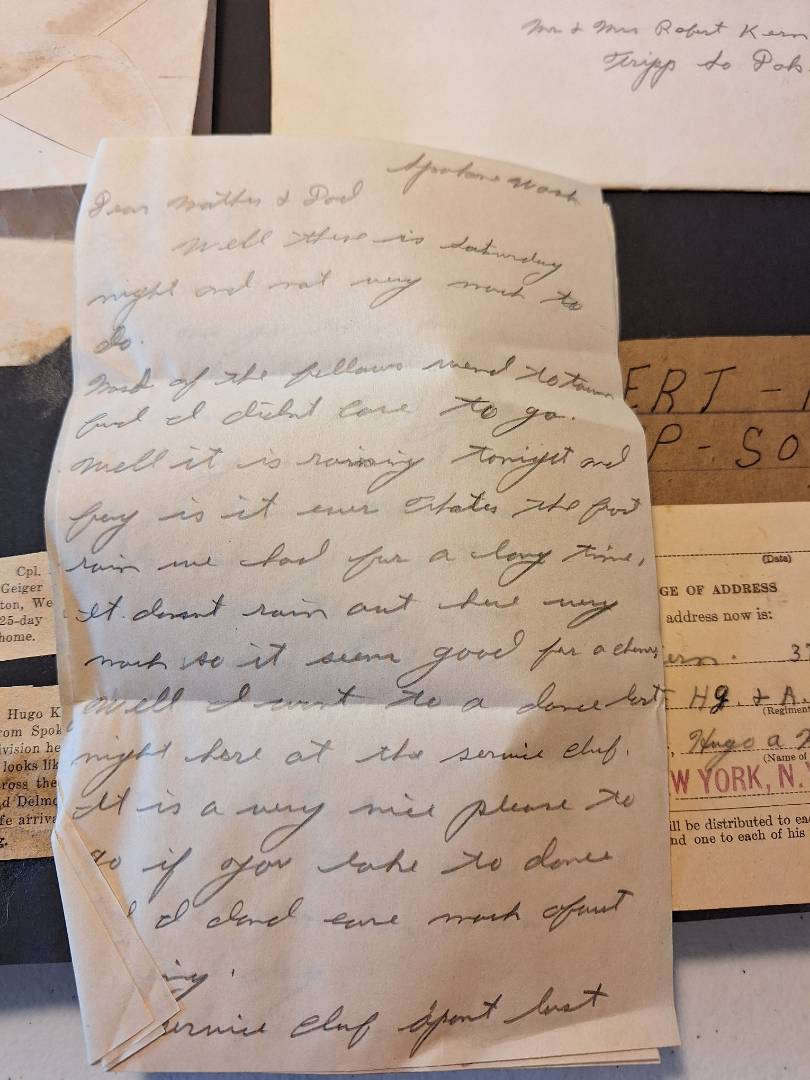 Mr & Mrs Robert Kern
Tripp So Dak.
Spokane Wash
Dear Mother & Dad
Well there is Saturday
night and not very much to
do.
Most of the fellows wend to town
but I didnt care to go.
Well it is raining tonight and
boy is it ever thats the first
rain we had for a long time,
It doesnt rain out here very
much so it seems good for a change
Well I went to a dance last
night here at the service club.
It is a very nice please to
go if you like to dance
I dond care much about
service club spent last
ERT -
P - SO
Cpl.
Geiger
ton, We
25-day
home.
Hugo K
rom Spok
ivision he
looks lik
ross the
d Delmo
fe arriva
(Date)
GE OF ADDRESS
address now is:
ern. 37
Hq. & A.
(Regiment
, Hugo a
(Name of
W YORK, N.
ill be distributed to ea
nd one to each of his